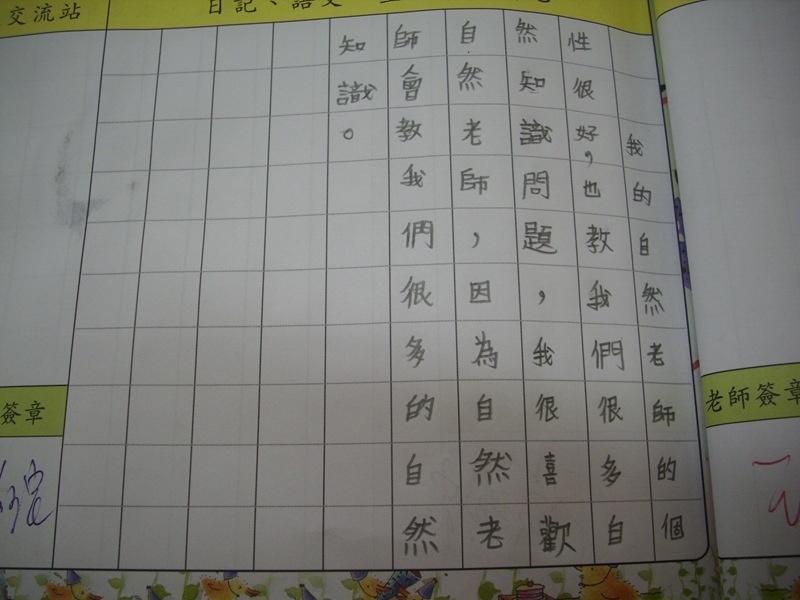 交流站
日記、語文
我的自然老師的個
性很好，也教我們很多自
然知識問題，我很喜歡
自然老師，因為自然老
師會教我們很多的自然
知識。
簽章
老師簽章